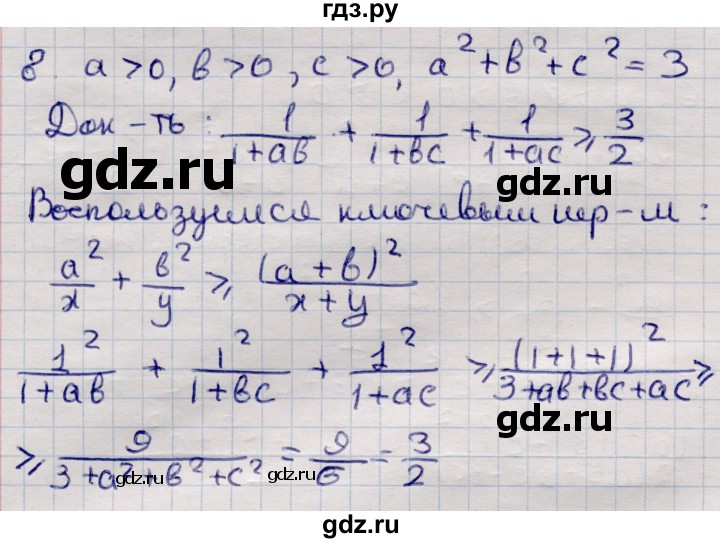 гдз.ру
8. a>0, b>0, c>0, a²+b²+c²=3
Док-ть: 1/(1+ab) + 1/(1+bc) + 1/(1+ac) ⩾ 3/2
gdz.ru
Воспользуемся ключевым нер-м:
a²/x + b²/y ⩾ (a+b)²/(x+y)
gdz.ru
1²/(1+ab) + 1²/(1+bc) + 1²/(1+ac) ⩾ (1+1+1)²/(3+ab+bc+ac) ⩾
gdz.ru
⩾ 9/(3+a²+b²+c²) = 9/6 = 3/2
gdz.ru
gdz.ru